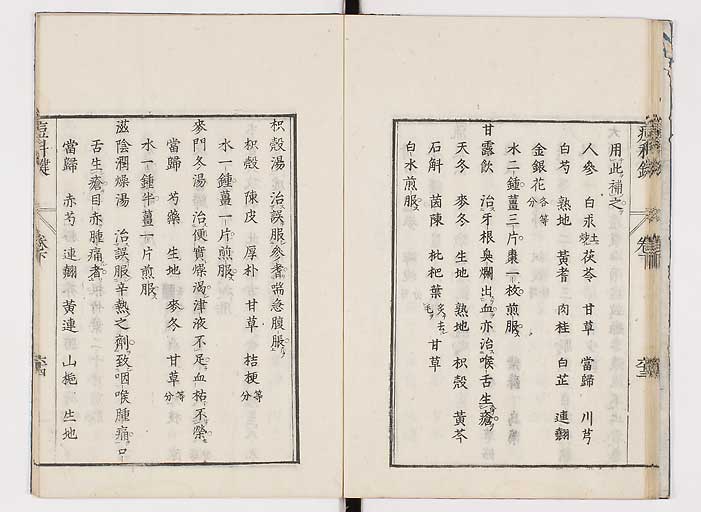 大用此補之
人參 白朮土炒 茯苓 甘草 當歸 川芎
白芍 熟地 黃耆 肉桂 白芷 連翹
金銀花各等分
水二鍾薑三片棗一枚煎服
甘露飲 治牙根臭爛出血亦治喉舌生瘡
天冬 麥冬 生地 熟地 枳殼 黃芩
石斛 茵陳 枇杷葉炙去毛 甘草
白水煎服
枳殼湯 治誤服參耆喘急腹脹
枳殼 陳皮 厚朴 甘草 桔梗等分
水一鍾薑一片煎服
麥門冬湯 治便實燥渴津液不足血枯不榮
當歸 芍藥 生地 麥冬 甘草等分
水一鍾半薑一片煎服
滋陰潤燥湯 治誤服辛熱之劑致咽喉腫痛口
舌生瘡目赤腫痛者
當歸 赤芍 連翹 黃連 山梔 生地
痘科鍵 卷下